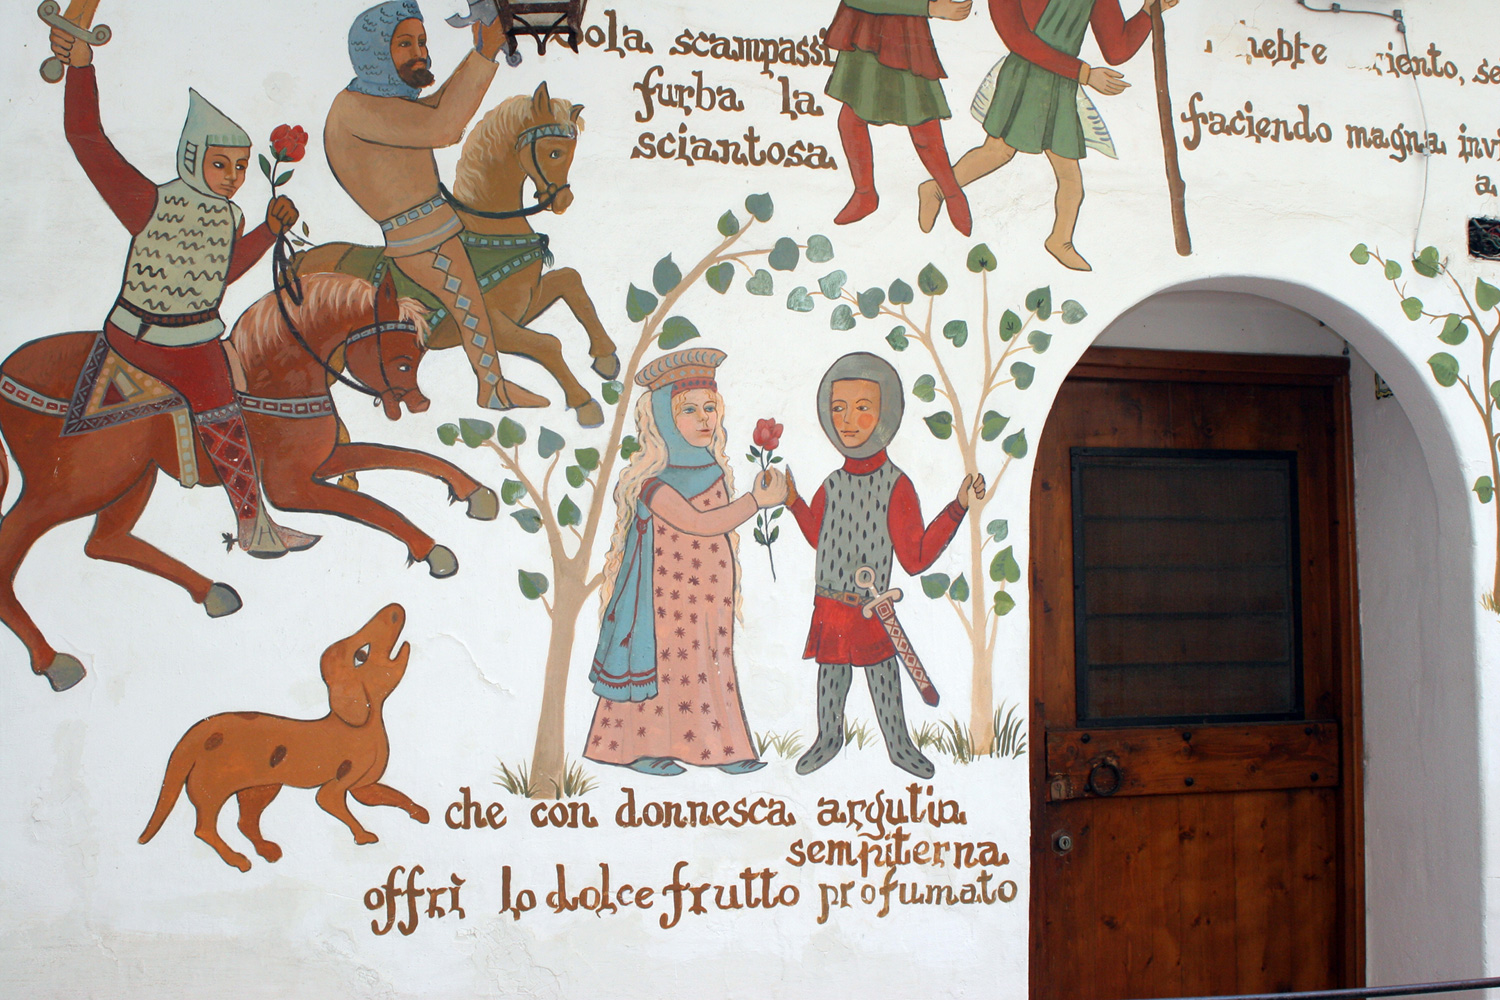 sola scampassi
furba la
sciantosa
faciendo magna
a
che con donnesca argutia
sempiterna
offrì lo dolce frutto profumato